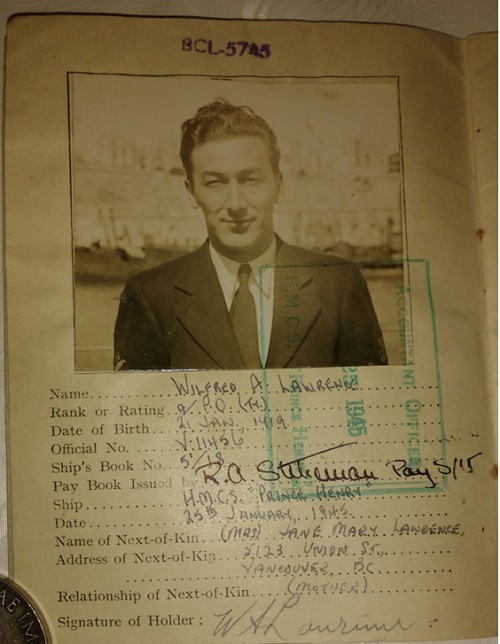 BCL-5745
ACCOUNTANT OFFICER
25 1945
H.M.C.S. PRINCE HENRY
Name WILFRED A. LAWRENCE
Rank or Rating A/P.O. (H.)
Date of Birth 21 JAN., 1919
Official No. V-11456
Ship's Book No. 5/18
Pay Book Issued by R.A. Pay S/Lt
Ship H.M.C.S. "PRINCE HENRY"
Date 25th JANUARY, 1945.
Name of Next-of-Kin (MRS) JANE MARY LAWRENCE,
Address of Next-of-Kin 2123 UNION ST.,
VANCOUVER, B.C.
Relationship of Next-of-Kin (MOTHER)
Signature of Holder: W A Lawrence